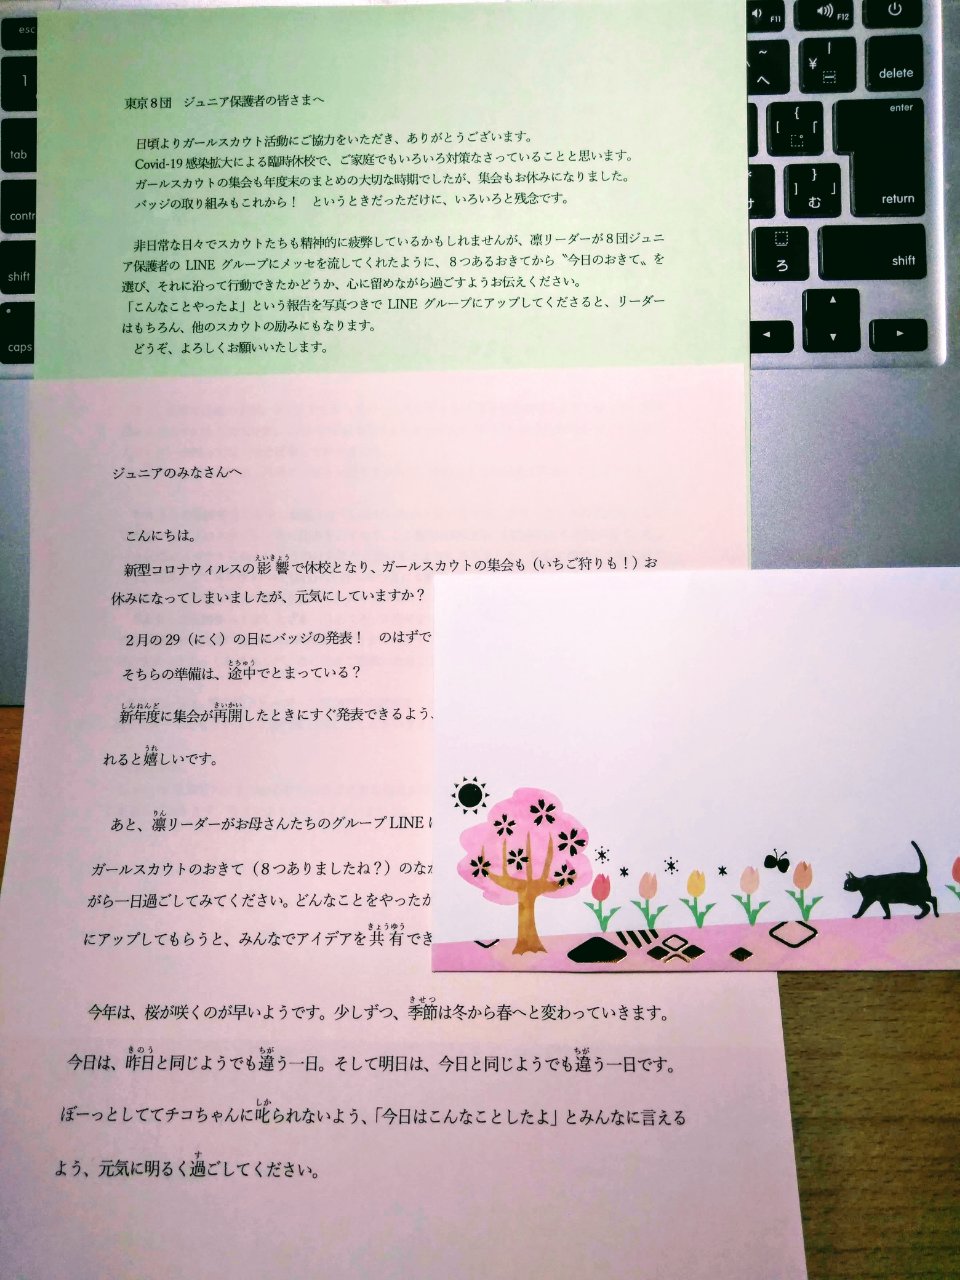 esc
F11
F12
1
~
へ
¥
ー
delete
tab
{
[
「
゜
enter
contr
け
}
]
」
む
return
shift
ろ
shift
caps
東京8団 ジュニア保護者の皆さまへ
日頃よりガールスカウト活動にご協力をいただき、ありがとうございます。
Covid-19 感染拡大による臨時休校で、ご家庭でもいろいろ対策なさっていることと思います。
ガールスカウトの集会も年度末のまとめの大切な時期でしたが、集会もお休みになりました。
バッジの取り組みもこれから！ というときだっただけに、いろいろと残念です。
非日常な日々でスカウトたちも精神的に疲弊しているかもしれませんが、凛リーダーが８団ジュニ
ア保護者の LINE グループにメッセを流してくれたように、８つあるおきてから〝今日のおきて〟を
選び、それに沿って行動できたかどうか、心に留めながら過ごすようお伝えください。
「こんなことやったよ」という報告を写真つきで LINE グループにアップしてくださると、リーダー
はもちろん、他のスカウトの励みにもなります。
どうぞ、よろしくお願いいたします。
ジュニアのみなさんへ
こんにちは。
えいきょう
新型コロナウィルスの影響で休校となり、ガールスカウトの集会も（いちご狩りも！）お
休みになってしまいましたが、元気にしていますか？
２月の 29（にく）の日にバッジの発表！ のはずで
とちゅう
そちらの準備は、途中でとまっている？
しんねんど さいかい
新年度に集会が再開したときにすぐ発表できるよう、
うれ
れると嬉しいです。
りん
あと、凛リーダーがお母さんたちのグループ LINE に
ガールスカウトのおきて（８つありましたね？）のなか
がら一日過ごしてみてください。どんなことをやったか
きょうゆう
にアップしてもらうと、みんなでアイデアを共有でき
きせつ
今年は、桜が咲くのが早いようです。少しずつ、季節は冬から春へと変わっていきます。
きのう ちが ちが
今日は、昨日と同じようでも違う一日。そして明日は、今日と同じようでも違う一日です。
しか
ぼーっとしててチコちゃんに叱られないよう、「今日はこんなことしたよ」とみんなに言える
す
よう、元気に明るく過ごしてください。